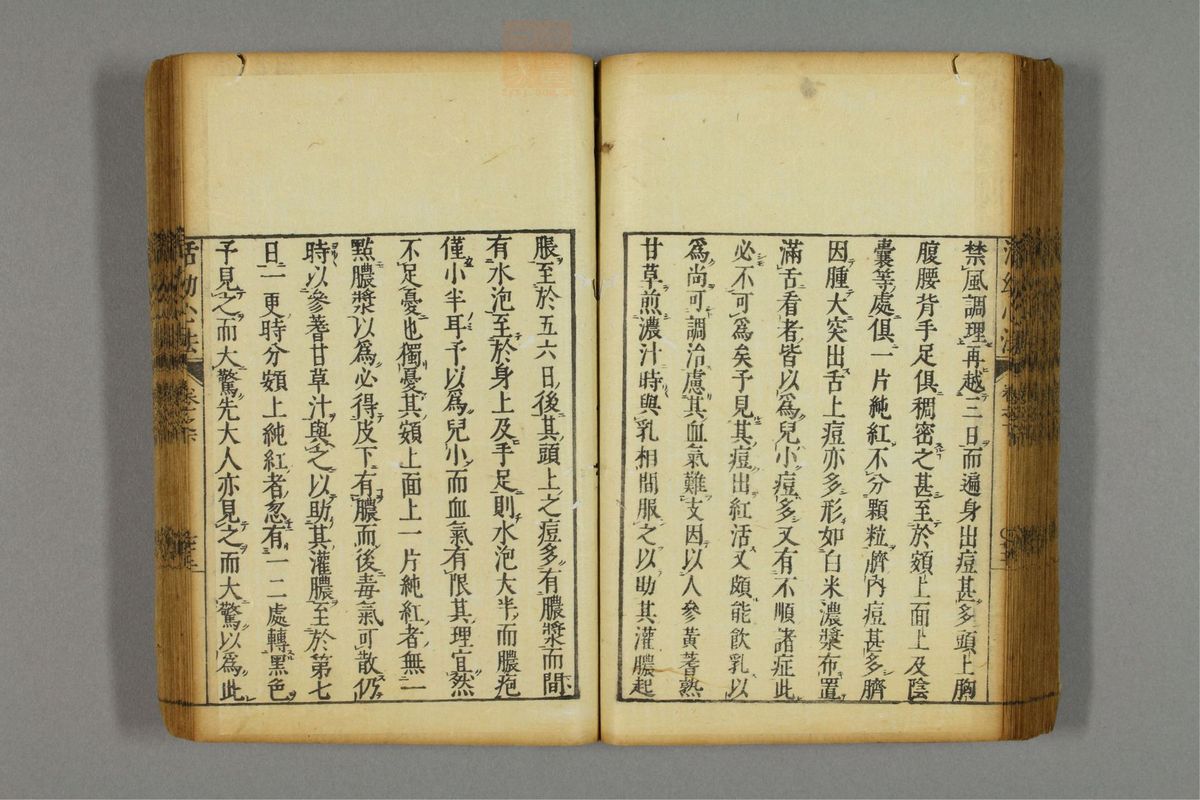 禁風調理再越三日而遍身出痘甚多頭上胸
腹腰背手足俱稠密之甚至於頦上面上及陰
囊等處俱一片純紅不分顆粒臍內痘甚多臍
因腫大突出舌上痘亦多形如白米濃漿布置
滿舌看者皆以為兒小痘多又有不順諸症此
必不可為矣予見其痘出紅活又頗能飲乳以
為尚可調治慮其血氣難支因以人參黃蓍熟
甘草煎濃汁時與乳相間服之以助其灌膿起
脹至於五六日後其頭上之痘多有膿漿而間
有水泡至於身上及手足則水泡大半而膿疱
僅小半耳予以為兒小而血氣有限其理宜然
不足憂也獨憂其頦上面上一片純紅者無一
點膿漿以為必得皮下有膿而後毒氣可散仍
時以參蓍甘草汁與之以助其灌膿至於第七
日一更時分頦上純紅者忽有一二處轉黑色
予見之而大驚先大人亦見之而大驚以為此
活幼心法